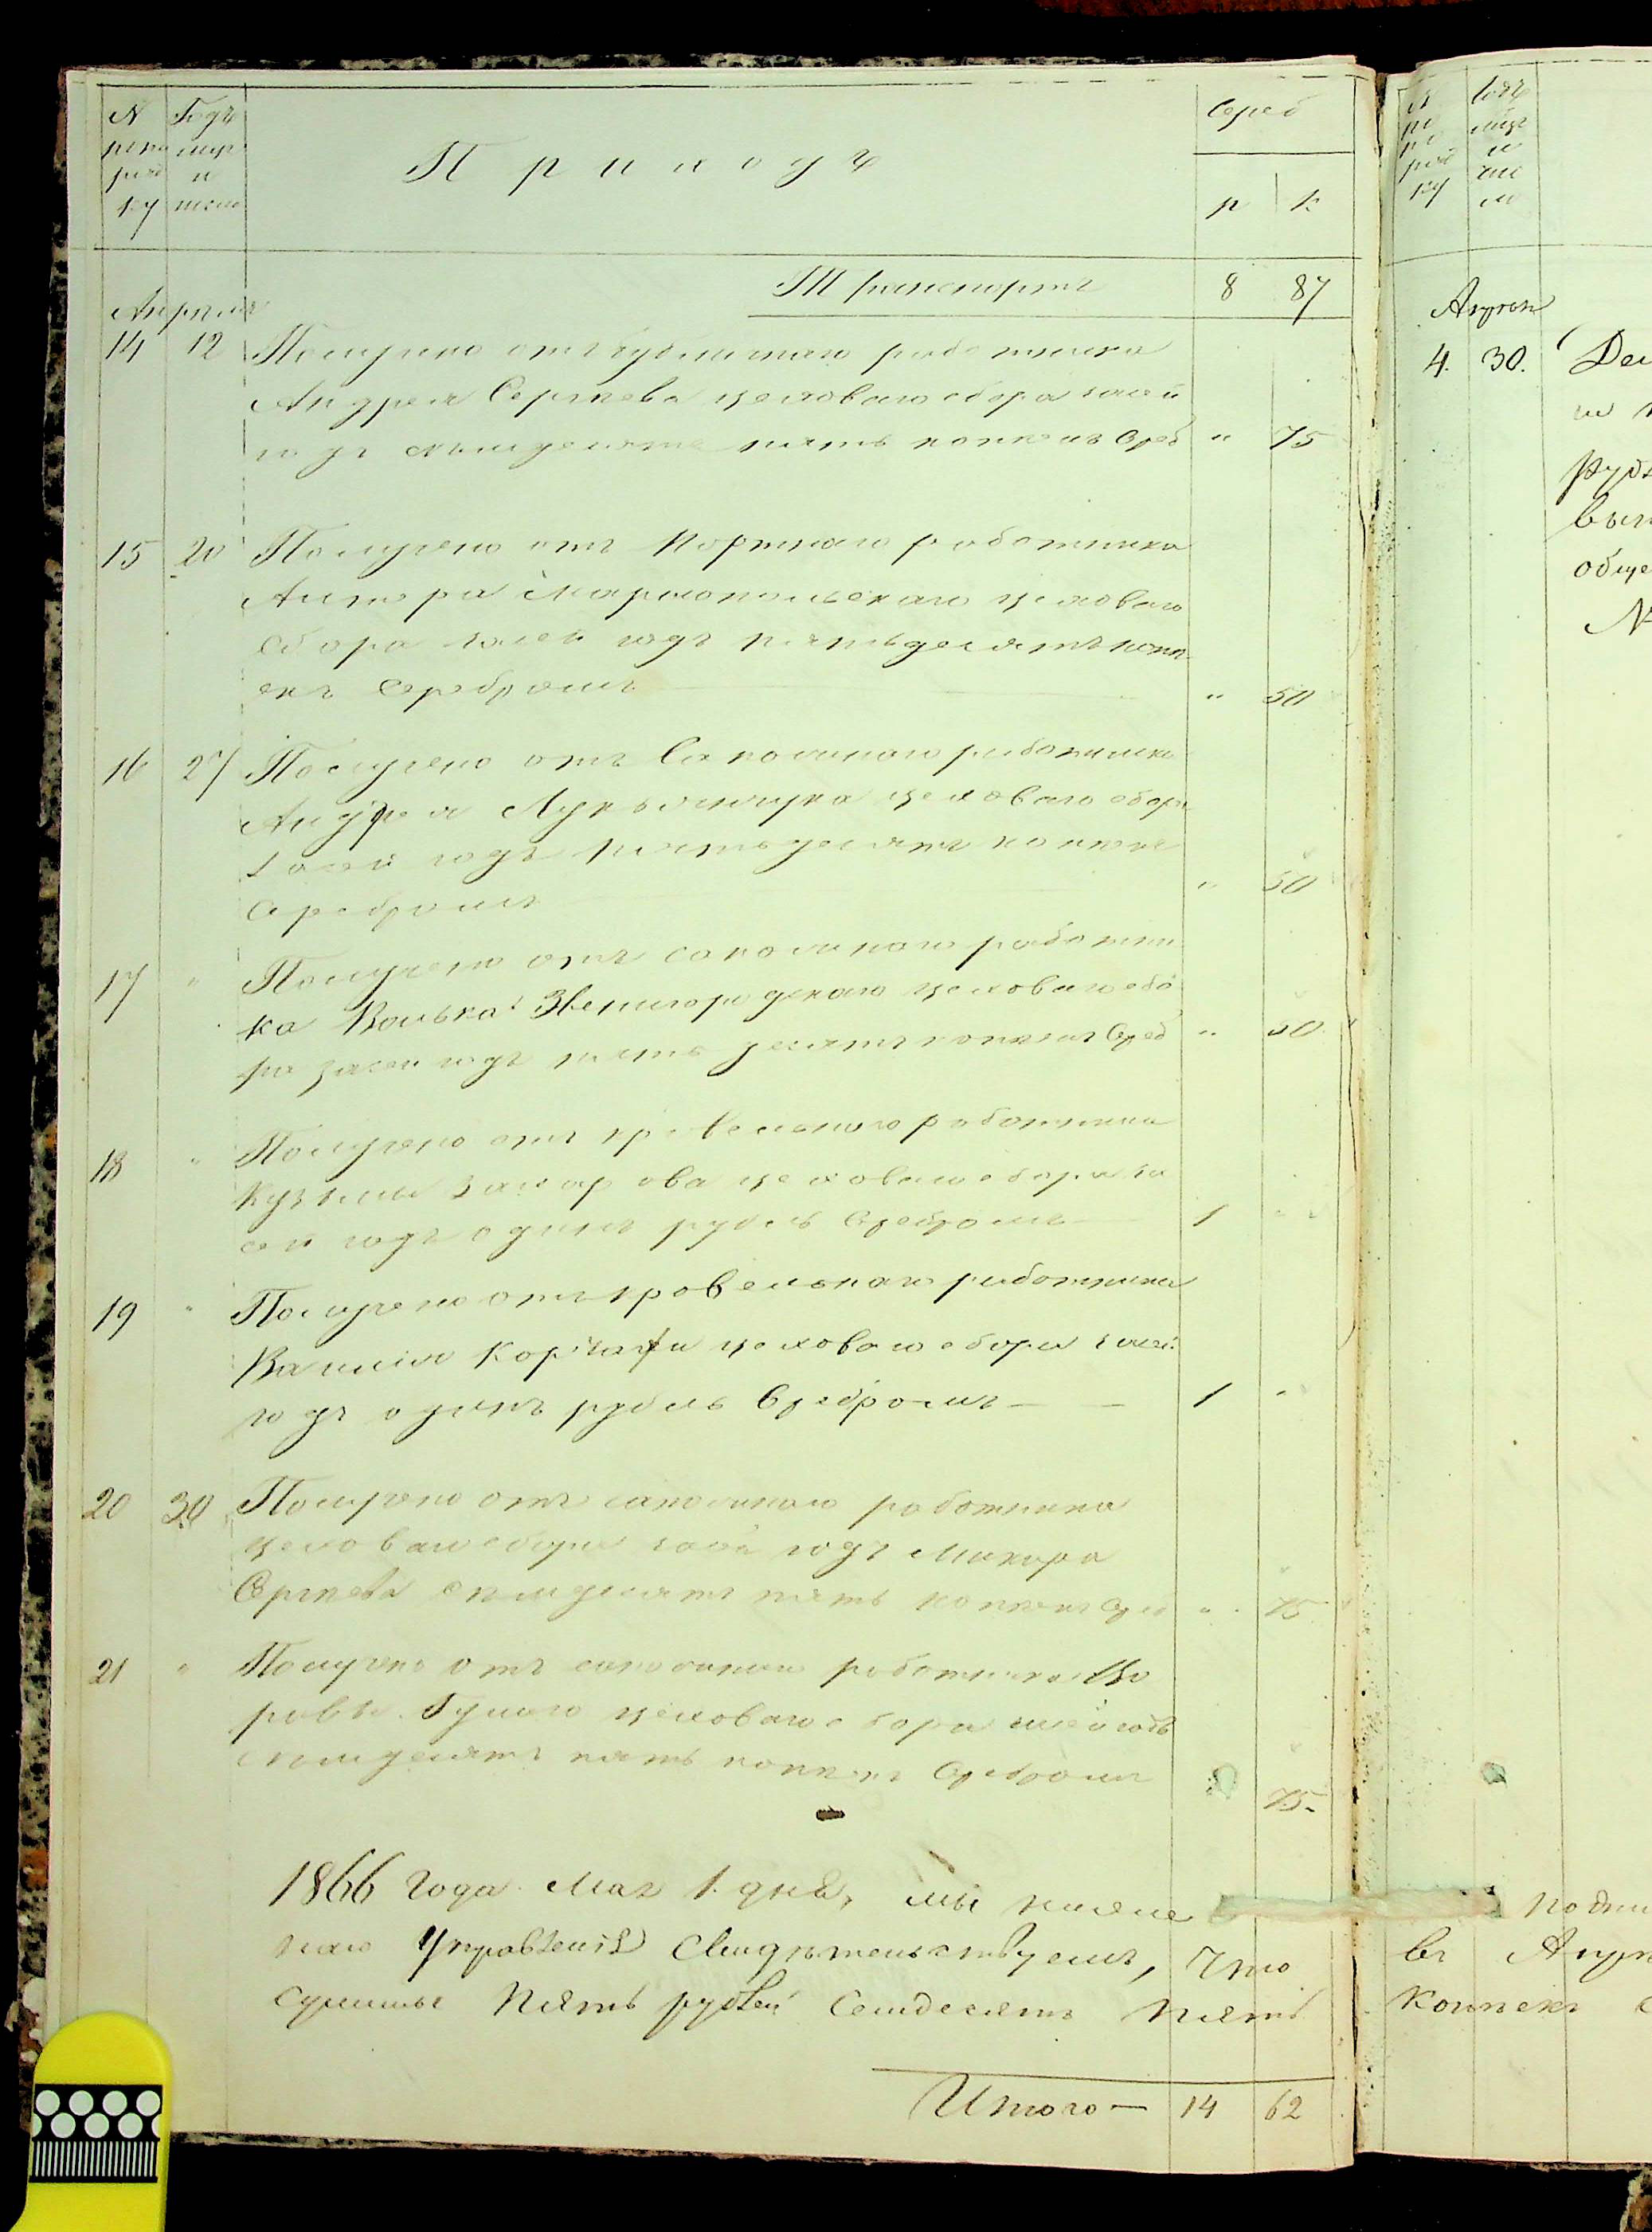 № Годъ Сереб
мѣр
и
ку число
Приходъ
р к
Транспортъ 8 87
Апрѣля
14 12 Получено отъ работника
Андрея Сергѣева цеховаго сбора засей
годъ семьдесятъ пять копѣекъ Среб " 75
15 20 Получено отъ Портнаго работника
Антора Мариопольскаго цеховаго
сбора засей годъ пятьдесятъ копѣ
екъ Серебромъ " 50
16 27 Получено отъ Сапожнаго работника
Андрея Лукьянчука цеховаго сбора
засей годъ пятьдесятъ копѣекъ
Серебромъ " 50
17 " Получено отъ сапожнаго работни
ка Волька Звенигородскаго цеховаго сбо
ра засей годъ пятьдесятъ копѣекъ Среб " 50
18 " Получено отъ кровельнаго работника
Кузьмы Захарова цеховаго сбора за
сей годъ одинъ рубль Сребромъ 1 "
19 " Получено отъ кровельнаго работника
Василія цеховаго сбора засей
годъ одинъ рубль Сребромъ 1 "
20 30 Получено отъ сапожнаго работника
цеховаго сбора засей годъ Макара
Сергѣева семьдесятъ пять копѣекъ Сре " 75
21 " Получено отъ сапожнаго работника
цеховаго сбора засей годъ
семьдесятъ пять копѣекъ Сребромъ 75
1866 Года Мая 1. дня, мы нижепо
наго Управленія Свидѣтельствуемъ, Что
суммы Пять рублей Семдесятъ Пять
Итого — 14 62
Апрѣля
4. 30.
руб
общ
№
подпи
въ Апрѣ
Копѣекъ с